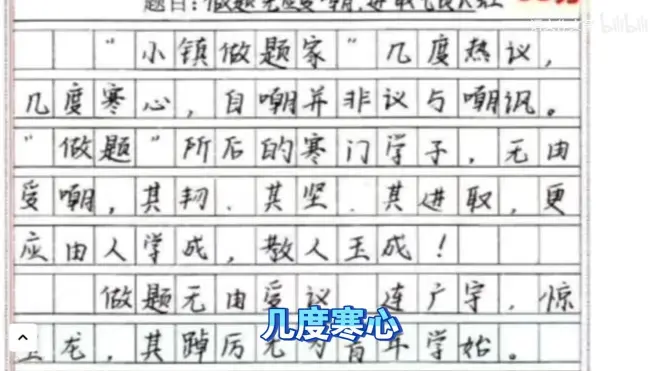 题目:做题无应受嘲,进取
bilibili
“小镇做题家”几度热议,
几度寒心,自嘲并非议与嘲讽。
“做题”所后的寒门学子,无由
受嘲,其韧、其坚、其进取,更
应由人学成,散人玉成!
做题无由受议,连广宇,惊
龙,其踔厉无为青年学始。
几度寒心